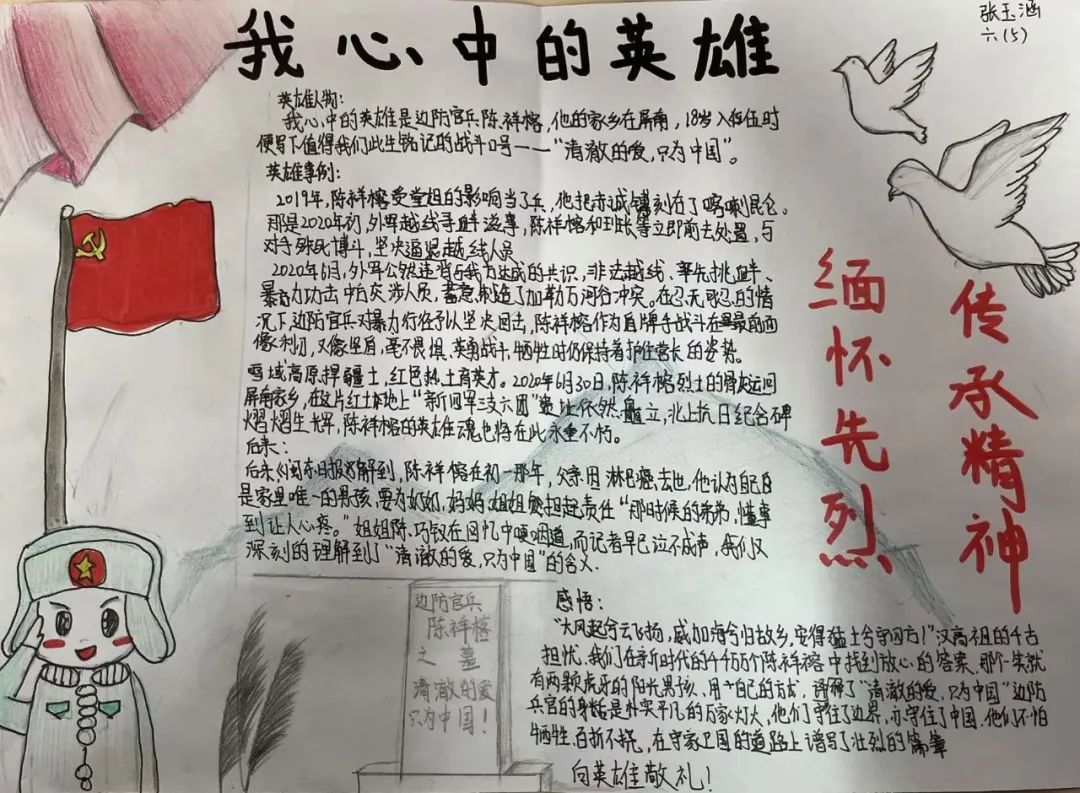 我心中的英雄
张玉涵
六(5)
英雄人物:
我心中的英雄是边防官兵陈祥榕,他的家乡在屏南,18岁入伍时
便写下值得我们此生铭记的战斗口号——“清澈的爱,只为中国”。
英雄事例:
2019年,陈祥榕受堂姐的影响当了兵,他把赤诚镌刻在了喀喇昆仑。
那是2020年初,外军越线寻衅滋事,陈祥榕和到账等立即前去处置,与
对手殊死博斗,坚决逼退越线人员
2020年6月,外军公然违背与我方达成的共识,非法越线、率先挑衅、
暴力攻击中方交涉人员,蓄意制造了加勒万河谷冲突。在忍无可忍的情
况下,边防官兵对暴力行径予以坚决回击,陈祥榕作为盾牌手战斗在最前面
像利刃,又像坚盾,毫不畏惧、英勇战斗,牺牲时仍保持着护住营长的姿势。
雪域高原捍疆土,红色热土育英才。2020年6月30日,陈祥榕烈士的骨灰运回
屏南家乡,在这片红土地上“新四军三支六团”遗址依然矗立,北上抗日纪念碑
熠熠生辉,陈祥榕的英雄魂也将在此永垂不朽。
后来:
后来《闽东日报》了解到,陈祥榕在初一那年,父亲因淋巴癌去世,他认为自己
是家里唯一的男孩,要为奶奶,妈妈,姐姐担起责任“那时候的弟弟,懂事
到让人心疼。”姐姐陈巧钗在回忆中哽咽道,而记者早已泣不成声,我们又
深刻的理解到了“清澈的爱,只为中国”的含义.
缅怀先烈
传承精神
边防官兵
陈祥榕
之墓
清澈的爱
只为中国!
感悟:
“大风起兮云飞扬,威加海兮归故乡,安得猛士兮守四方!”汉高祖的千古
担忧,我们在新时代的千千万万个陈祥榕中找到放心的答案、那个一笑就
有两颗虎牙的阳光男孩、用自己的方式,诠释了“清澈的爱、只为中国”边防
兵官的身後是朴实平凡的万家灯火,他们守住了边界,亦守住了中国.他们不怕
牺牲、百折不挠,在守家卫国的道路上谱写了壮烈的篇章
向英雄敬礼!